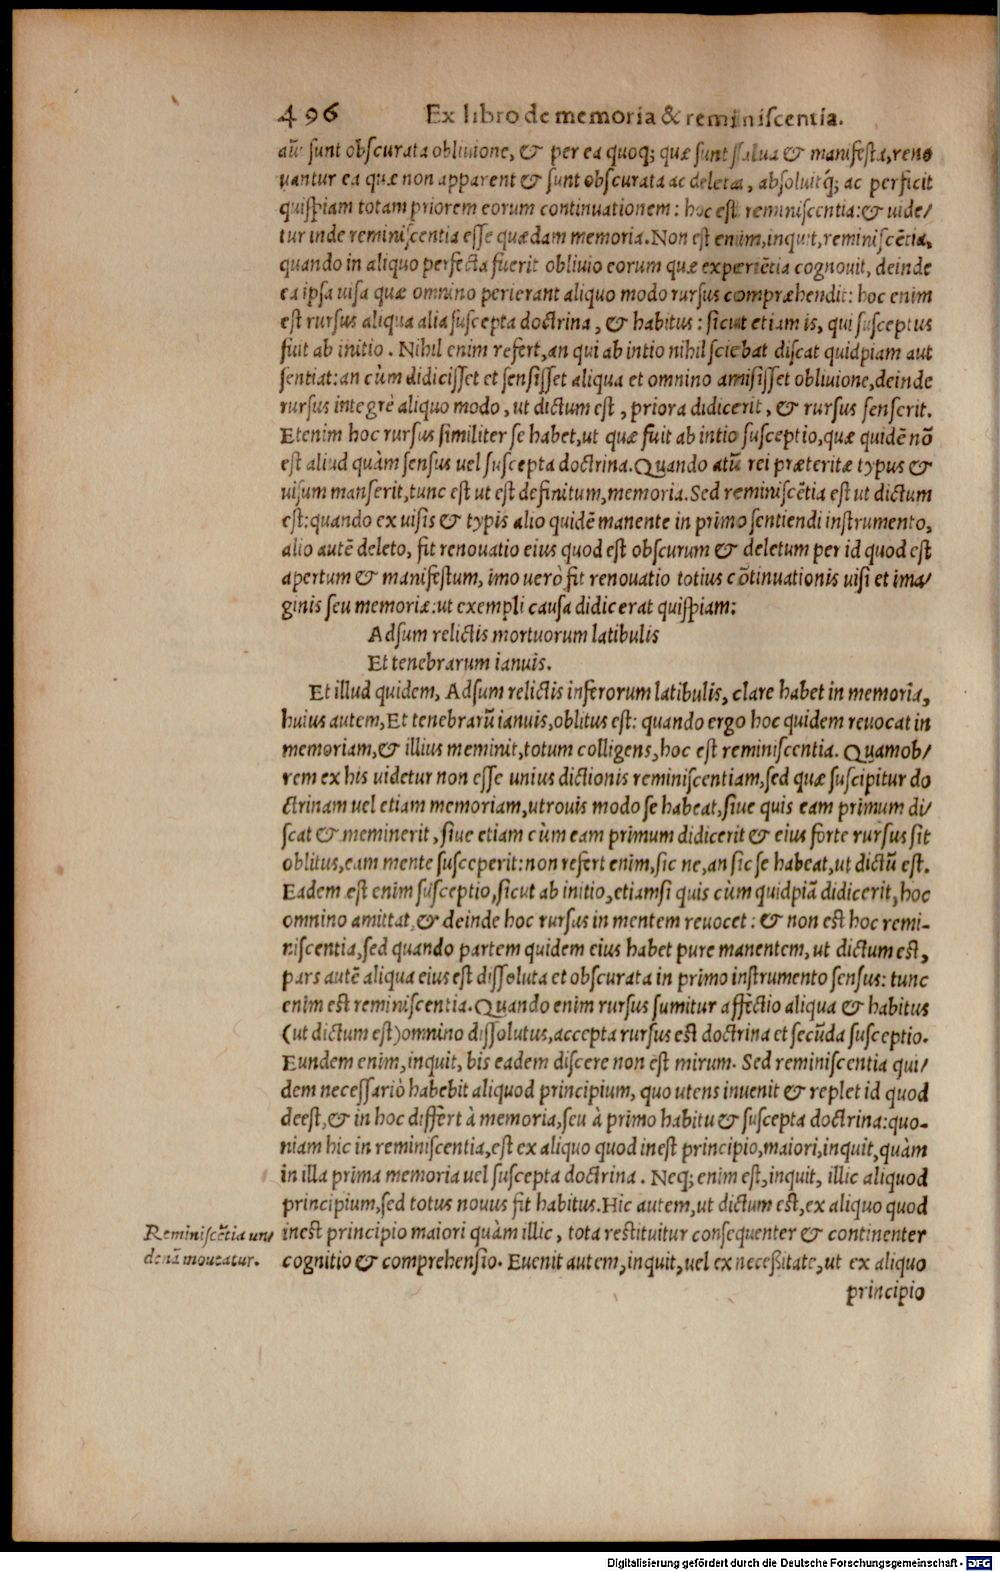 496 Ex libro de memoria & reminiscentia.
aũt sunt obscurata obliuione, & per ea quoq; quæ sunt salua & manifesta, reno
uantur ea quæ non apparent & sunt obscurata ac deleta, absoluitq́; ac perficit
quispiam totam priorem eorum continuationem: hoc est reminiscentia: & uide/
tur inde reminiscentia esse quædam memoria. Non est enim, inquit, reminiscẽtia,
quando in aliquo perfecta fuerit obliuio eorum quæ experiẽtia cognouit, deinde
ea ipsa uisa quæ omnino perierant aliquo modo rursus compræhendit: hoc enim
est rursus aliqua alia suscepta doctrina, & habitus: sicut etiam is, qui susceptus
fuit ab initio. Nihil enim refert, an qui ab intio nihil sciebat discat quidpiam aut
sentiat: an cùm didicisset et sensisset aliqua et omnino amisisset obliuione, deinde
rursus integrè aliquo modo, ut dictum est, priora didicerit, & rursus senserit.
Etenim hoc rursus similiter se habet, ut quæ fuit ab intio susceptio, quæ quidẽ nõ
est aliud quàm sensus uel suscepta doctrina. Quando atũ rei præteritæ typus &
uisum manserit, tunc est ut est definitum, memoria. Sed reminiscẽtia est ut dictum
est: quando ex uisis & typis alio quidẽ manente in primo sentiendi instrumento,
alio autẽ deleto, fit renouatio eius quod est obscurum & deletum per id quod est
apertum & manifestum, imo uerò fit renouatio totius cõtinuationis uisi et ima/
ginis seu memoriæ: ut exempli causa didicerat quispiam:
Adsum relictis mortuorum latibulis
Et tenebrarum ianuis.
Et illud quidem, Adsum relictis inferorum latibulis, clare habet in memoria,
huius autem, Et tenebrarũ ianuis, oblitus est: quando ergo hoc quidem reuocat in
memoriam, & illius meminit, totum colligens, hoc est reminiscentia. Quamob/
rem ex his uidetur non esse unius dictionis reminiscentiam, sed quæ suscipitur do
ctrinam uel etiam memoriam, utrouis modo se habeat, siue quis eam primum di/
scat & meminerit, siue etiam cùm eam primum didicerit & eius forte rursus sit
oblitus, eam mente susceperit: non refert enim, sic ne, an sic se habeat, ut dictũ est.
Eadem est enim susceptio, sicut ab initio, etiamsi quis cùm quidpiã didicerit, hoc
omnino amittat, & deinde hoc rursus in mentem reuocet: & non est hoc remi-
niscentia, sed quando partem quidem eius habet pure manentem, ut dictum est,
pars autẽ aliqua eius est dissoluta et obscurata in primo instrumento sensus: tunc
enim est reminiscentia. Quando enim rursus sumitur affectio aliqua & habitus
(ut dictum est) omnino dissolutus, accepta rursus est doctrina et secũda susceptio.
Eundem enim, inquit, bis eadem discere non est mirum. Sed reminiscentia qui/
dem necessariò habebit aliquod principium, quo utens inuenit & replet id quod
deest, & in hoc differt à memoria, seu à primo habitu & suscepta doctrina: quo-
niam hic in reminiscentia, est ex aliquo quod inest principio, maiori, inquit, quàm
in illa prima memoria uel suscepta doctrina. Neq; enim est, inquit, illic aliquod
principium, sed totus nouus fit habitus. Hic autem, ut dictum est, ex aliquo quod
inest principio maiori quàm illic, tota restituitur consequenter & continenter
cognitio & comprehensio. Euenit autem, inquit, uel ex necessitate, ut ex aliquo
principio
Reminiscẽtia un/
denã moueatur.
Digitalisierung gefördert durch die Deutsche Forschungsgemeinschaft - DFG